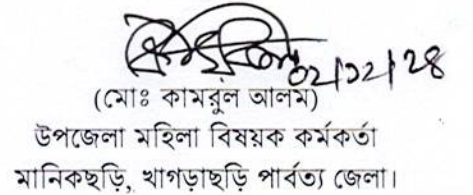 ০২/১২/২৪
(মোঃ কামরুল আলম)
উপজেলা মহিলা বিষয়ক কর্মকর্তা
মানিকছড়ি, খাগড়াছড়ি পার্বত্য জেলা।